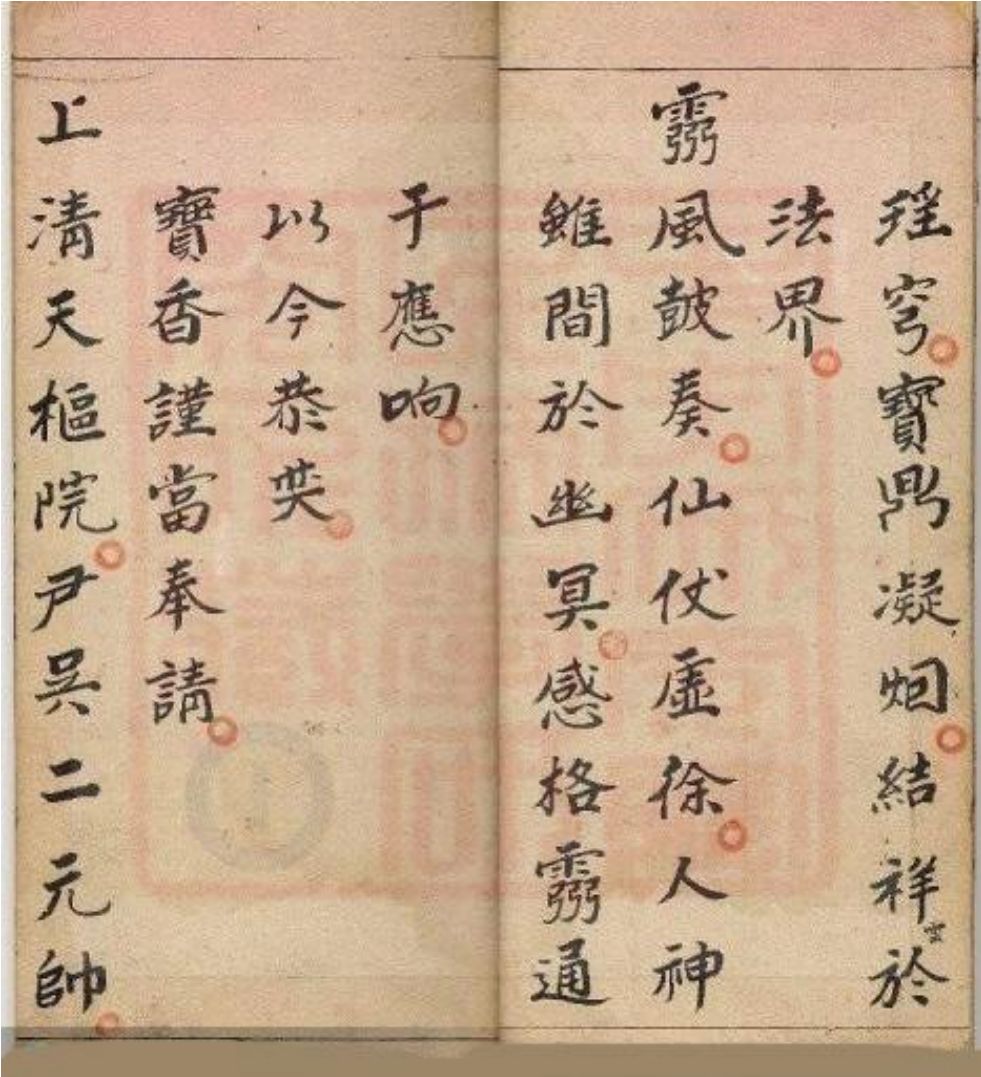 瑶穹寶鼎凝烟結祥雲於
法界
霛風鼓奏仙仗虛徐人神
雖間於幽冥感格霛通
于應响
以今恭焚
寶香謹當奉請
上清天樞院尹吳二元帥